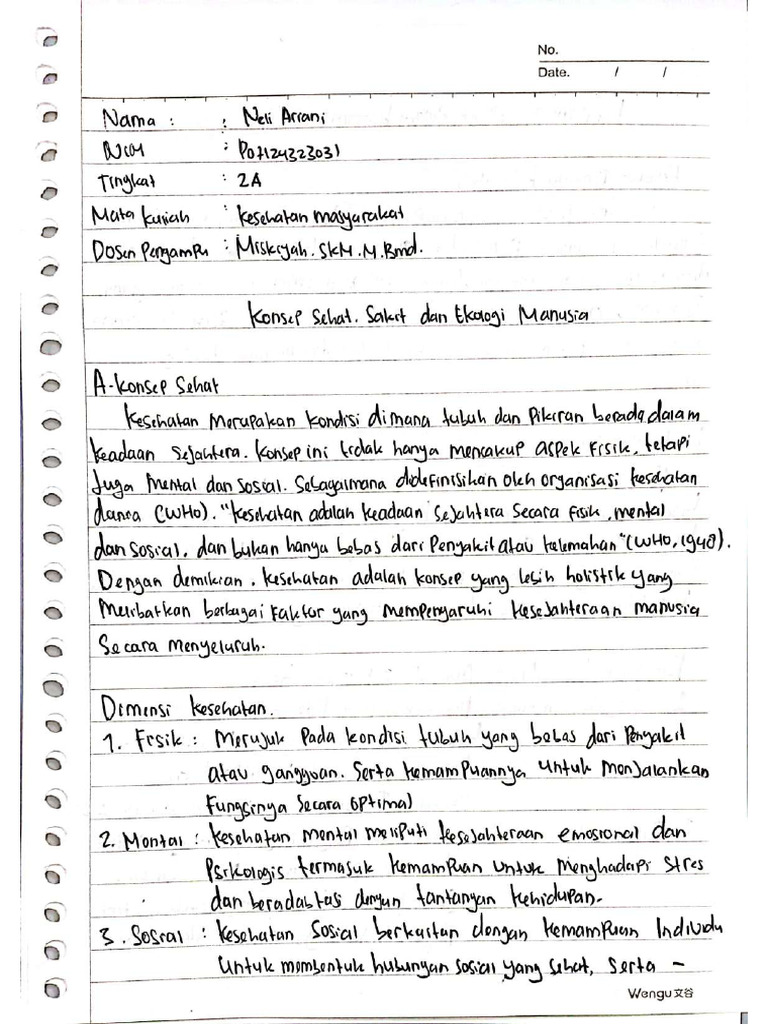 No.
Date. / /
Nama : : Neli Arrani
NIM : P07124323031
Tingkat : 2A
Mata kuliah : kesehatan masyarakat
Dosen Pengampu : Miskiyah. SKM. M.Bmd.
Konsep Sehat. Sakit dan Ekologi Manusia
A. Konsep Sehat
Kesehatan merupakan kondisi dimana tubuh dan Pikiran berada dalam
keadaan sejahtera. Konsep ini tidak hanya mencakup aspek fisik, tetapi
juga mental dan sosial. Sebagaimana didefinisikan oleh organisasi kesehatan
dunia (WHO). "kesehatan adalah keadaan sejahtera secara fisik, mental
dan sosial, dan bukan hanya bebas dari Penyakit atau kelemahan" (WHO, 1948).
Dengan demikian, kesehatan adalah konsep yang lebih holistik yang
Melibatkan berbagai faktor yang mempengaruhi kesejahteraan manusia
Secara menyeluruh.
Dimensi kesehatan.
1. Fisik : Merujuk Pada kondisi tubuh yang bebas dari Penyakit
atau gangguan. Serta kemampuannya untuk menjalankan
fungsinya secara optimal
2. Mental : kesehatan mental meliputi kesejahteraan emosional dan
Psikologis termasuk kemampuan untuk menghadapi stres
dan beradabtasi dengan tantangan kehidupan.
3. Sosial : kesehatan sosial berkaitan dengan kemampuan Individu
Untuk membentuk hubungan sosial yang sehat, serta -
Wengu文谷